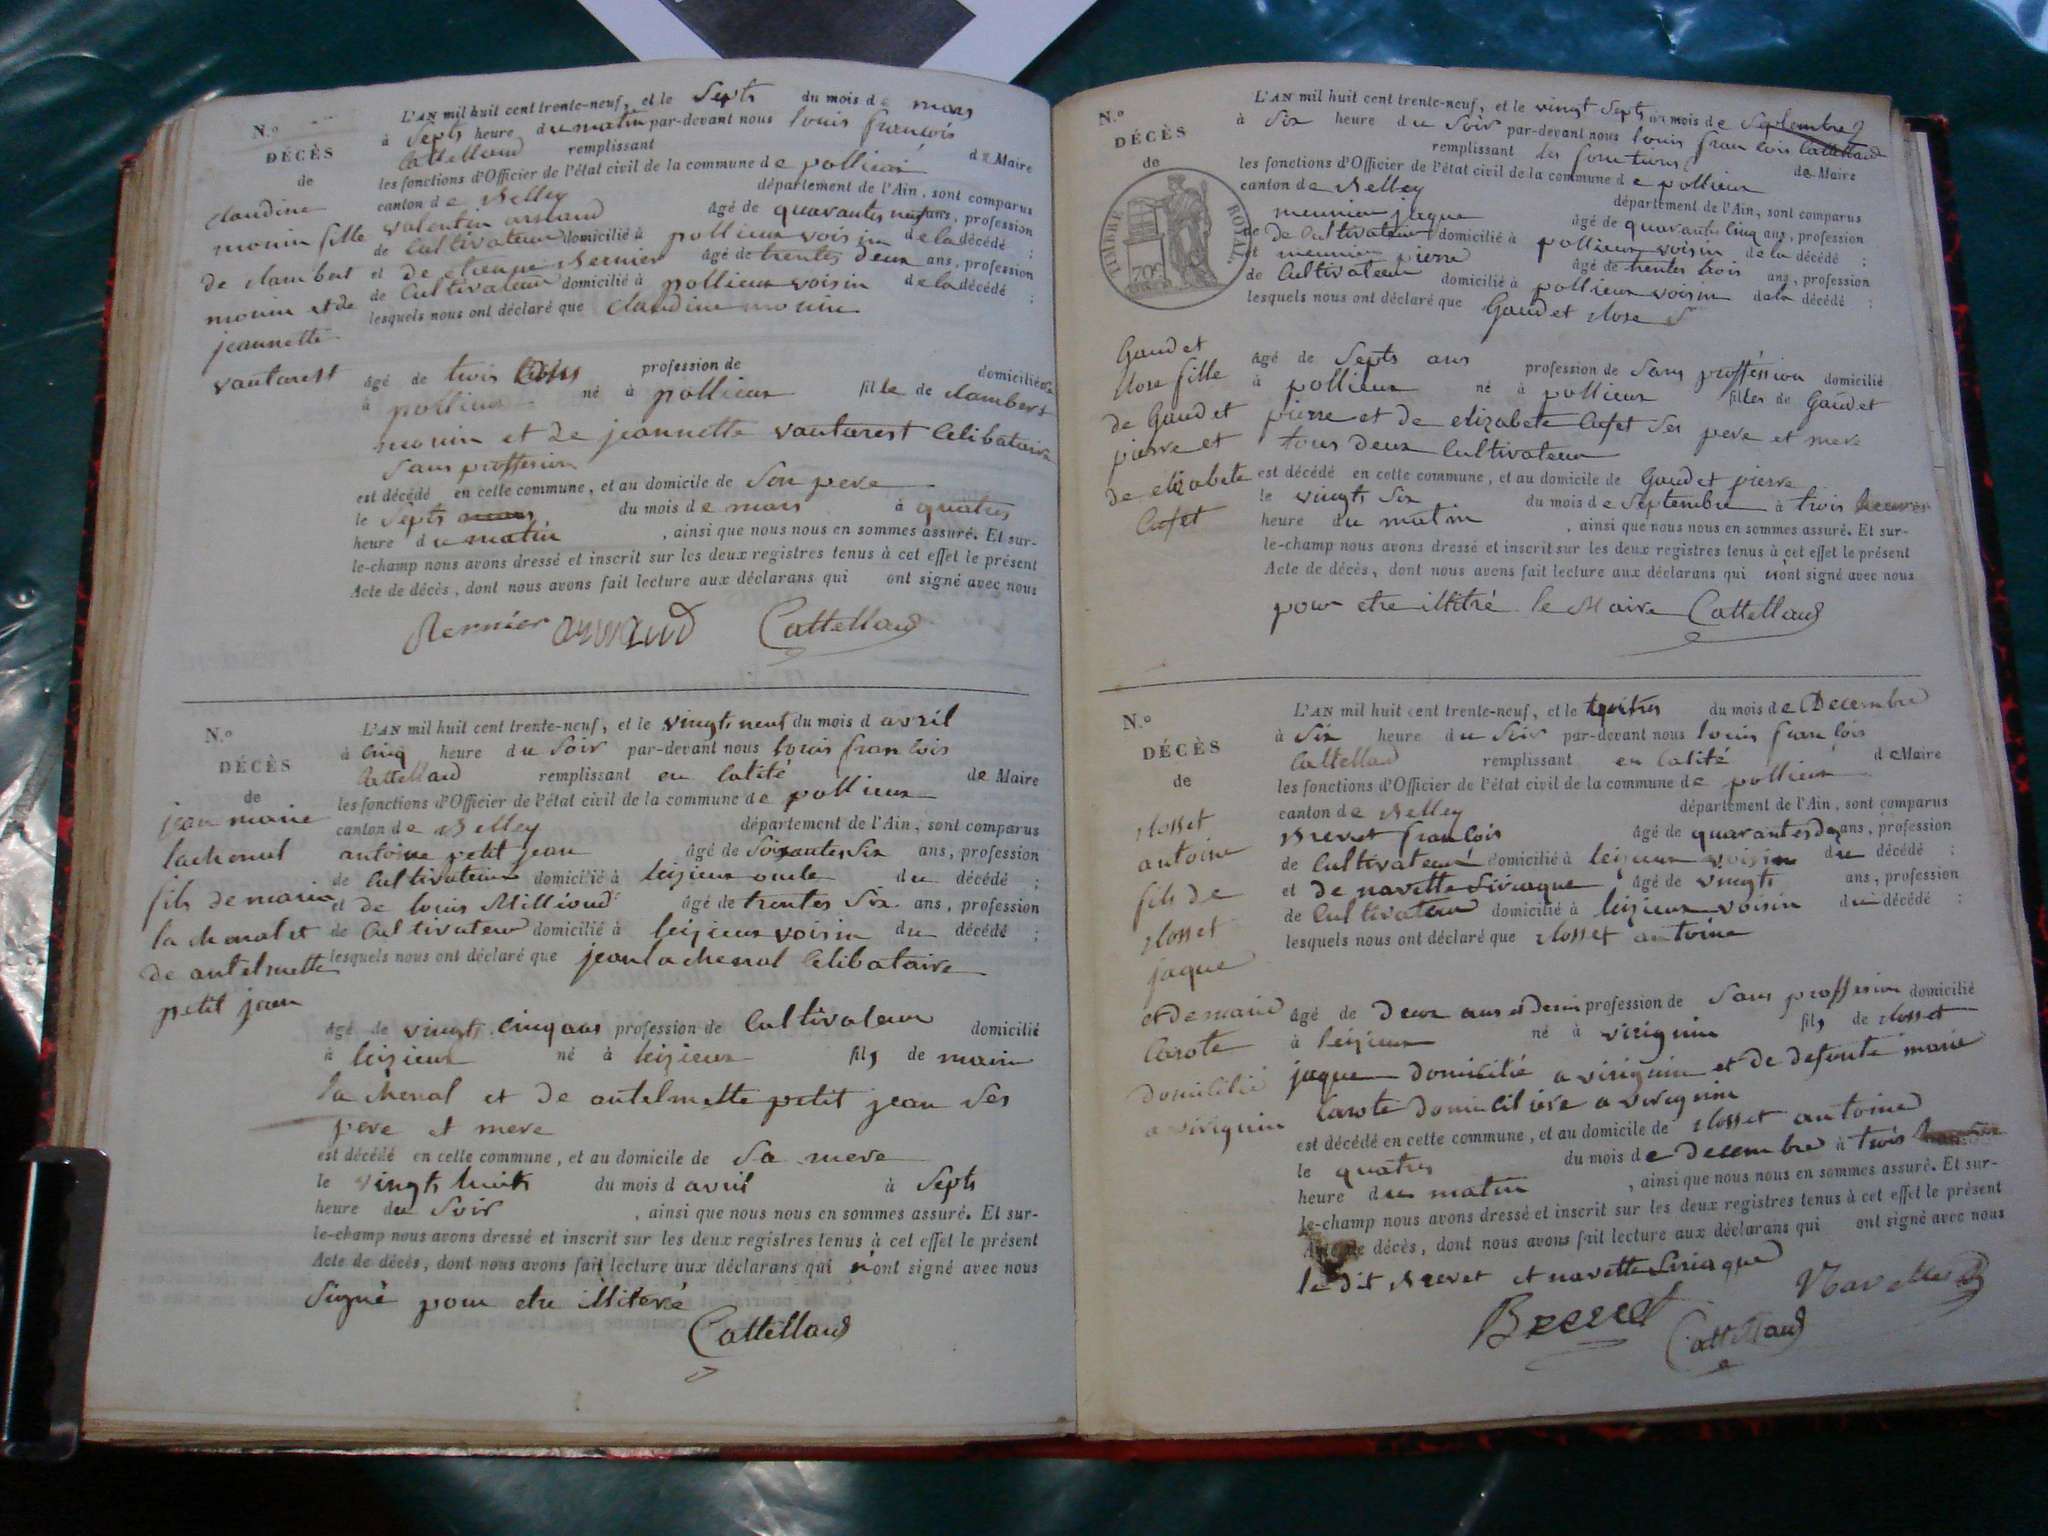 N.º
DÉCÈS
de
claudine
monin fille
de clambert
monin et de
jeannette
vautarest
L'AN mil huit cent trente-neuf, et le septs du mois de mars
à septs heure du matin par-devant nous louis françois
Cattelland remplissant de Maire
les fonctions d'Officier de l'état civil de la commune de pollieu
canton de Belley département de l'Ain, sont comparus
valentin arnaud âgé de quarantes neuf ans, profession
de Cultivateur domicilié à pollieux voisin de la décédé ;
et de etienne Bernier âgé de trentes deux ans, profession
de Cultivateur domicilié à pollieux voisin de la décédé ;
lesquels nous ont déclaré que claudine monin
âgé de trois profession de domicilié
à pollieux né à pollieux fille de clambert
monin et de jeannette vautarest Celibataire
Sans proffesion
est décédé en cette commune, et au domicile de Son pere
le Septs du mois de mars à quatres
heure du matin , ainsi que nous nous en sommes assuré. Et sur-
le-champ nous avons dressé et inscrit sur les deux registres tenus à cet effet le présent
Acte de décès, dont nous avons fait lecture aux déclarans qui ont signé avec nous
Bernier arnaud Cattelland
N.º
DÉCÈS
de
jean marie
lachenal
fils de marin
la chenal et
de antelmette
petit jean
L'AN mil huit cent trente-neuf, et le vingts neuf du mois d avril
à Cinq heure du Soir par-devant nous louis francois
Cattelland remplissant en Calité de Maire
les fonctions d'Officier de l'état civil de la commune de pollieux
canton de Belley département de l'Ain, sont comparus
antoine petit jean âgé de Soixantes Six ans, profession
de Cultivateur domicilié à leizieux oncle du décédé ;
et de louis Millioud âgé de trentes Six ans, profession
de Cultivateur domicilié à leizieux voisin du décédé ;
lesquels nous ont déclaré que jean lachenal Celibataire
âgé de vingts Cinq ans profession de Cultivateur domicilié
à leizieux né à leizieux fils de marin
la chenal et de antelmette petit jean Ses
pere et mere
est décédé en cette commune, et au domicile de Sa mere
le vingts huits du mois d avril à Septs
heure du Soir , ainsi que nous nous en sommes assuré. Et sur-
le-champ nous avons dressé et inscrit sur les deux registres tenus à cet effet le présent
Acte de décès, dont nous avons fait lecture aux déclarans qui n'ont signé avec nous
Signé pour etre illiteré
Cattelland
N.º
DÉCÈS
de
TIMBRE ROYAL
Gaudet
Rose fille
de Gaudet
pierre et
de elizabete
Cufet
L'AN mil huit cent trente-neuf, et le vingt Septs du mois de Septembre
à Six heure du Soir par-devant nous louis francois Cattelland
remplissant les fonctions de Maire
les fonctions d'Officier de l'état civil de la commune de pollieux
canton de Belley département de l'Ain, sont comparus
meunier jaque âgé de quarante Cinq ans, profession
de Cultivateur domicilié à pollieux voisin de la décédé ;
et meunier pierre âgé de trentes trois ans, profession
de Cultivateur domicilié à pollieux voisin de la décédé ;
lesquels nous ont déclaré que Gaudet Rose
âgé de Septs ans profession de Sans proffésion domicilié
à pollieux né à pollieux filles de Gaudet
pierre et de elizabete Cufet Ses pere et mere
tous deux Cultivateur
est décédé en cette commune, et au domicile de Gaudet pierre
le vingts Six du mois de Septembre à trois heures
heure du matin , ainsi que nous nous en sommes assuré. Et sur-
le-champ nous avons dressé et inscrit sur les deux registres tenus à cet effet le présent
Acte de décès, dont nous avons fait lecture aux déclarans qui n'ont signé avec nous
pour etre illitré le Maire Cattelland
N.º
DÉCÈS
de
Rosset
antoine
fils de
Rosset
jaque
et de marie
Carote
domicilié
a virignin
L'AN mil huit cent trente-neuf, et le du mois de Decembre
à Six heure du Soir par-devant nous louis francois
Cattelland remplissant en Calité de Maire
les fonctions d'Officier de l'état civil de la commune de pollieux
canton de Belley département de l'Ain, sont comparus
Brevet francois âgé de quarantes ans, profession
de Cultivateur domicilié à leizieux voisin du décédé ;
et de navette Siriaque âgé de vingts ans, profession
de Cultivateur domicilié à leizieux voisin du décédé ;
lesquels nous ont déclaré que Rosset antoine
âgé de deux ans et demi profession de Sans proffesion domicilié
à leizieux né à virignin fils de Rosset
jaque domicilié a virignin et de defunte marie
Carote domiciliere a virignin
est décédé en cette commune, et au domicile de Rosset antoine
le quatres du mois de Decembre à trois
heure du matin , ainsi que nous nous en sommes assuré. Et sur-
le-champ nous avons dressé et inscrit sur les deux registres tenus à cet effet le présent
Acte de décès, dont nous avons fait lecture aux déclarans qui ont signé avec nous
le dit Brevet et navette Siriaque
Brevet Cattelland Navette